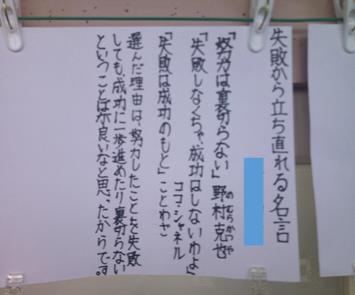 失敗から立ち直れる名言
「努力は裏切らない」野村克也
のむらかつや
「失敗しなくちゃ、成功はしないわよ」
ココ・シャネル
「失敗は成功のもと」ことわざ
選んだ理由は、努力したことを失敗
しても、成功に一歩進めたり裏切らない
ということばが良いなと思ったからです。